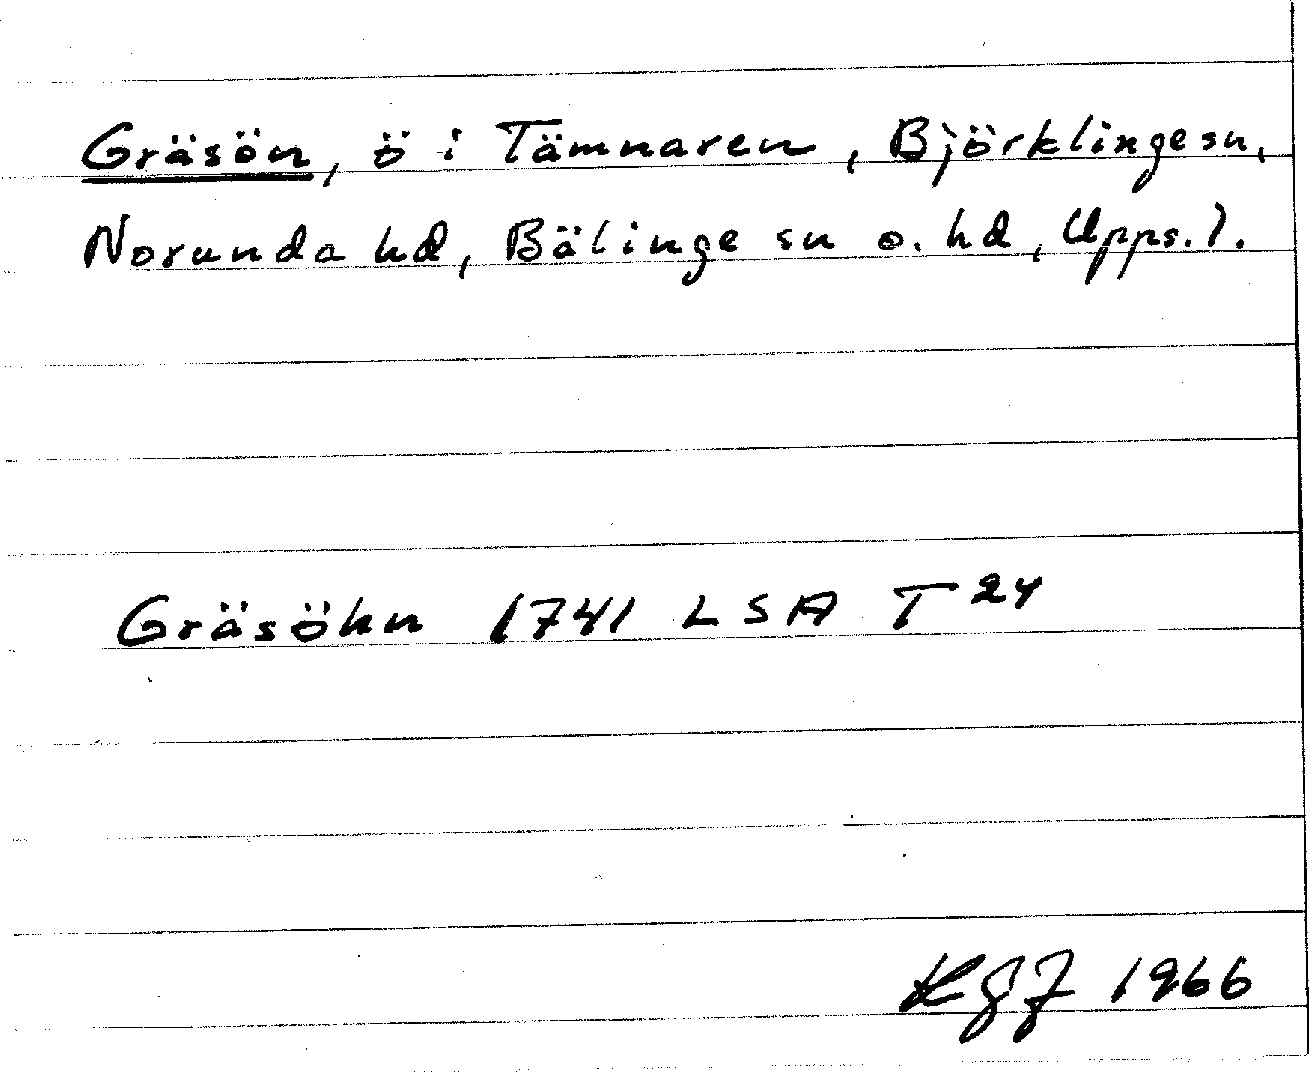 Gräsön, ö i Tämnaren, Björklinge sn,
Norunda hd, Bälinge sn o. hd, Upps. l.
Gräsöhn 1741 LSA T 24
KGJ 1966